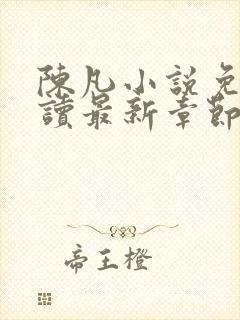 陳凡小說免
讀最新章節
帝王橙